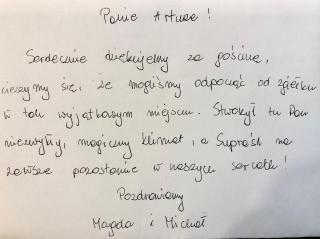 Panie Arturze!
Serdecznie dziękujemy za gościnę,
cieszymy się, że mogliśmy odpocząć od zgiełku
w tak wyjątkowym miejscu. Stworzył tu Pan
niezwykły, magiczny klimat, a Supraśl na
zawsze pozostanie w naszych sercach!
Pozdrawiamy
Magda i Michał